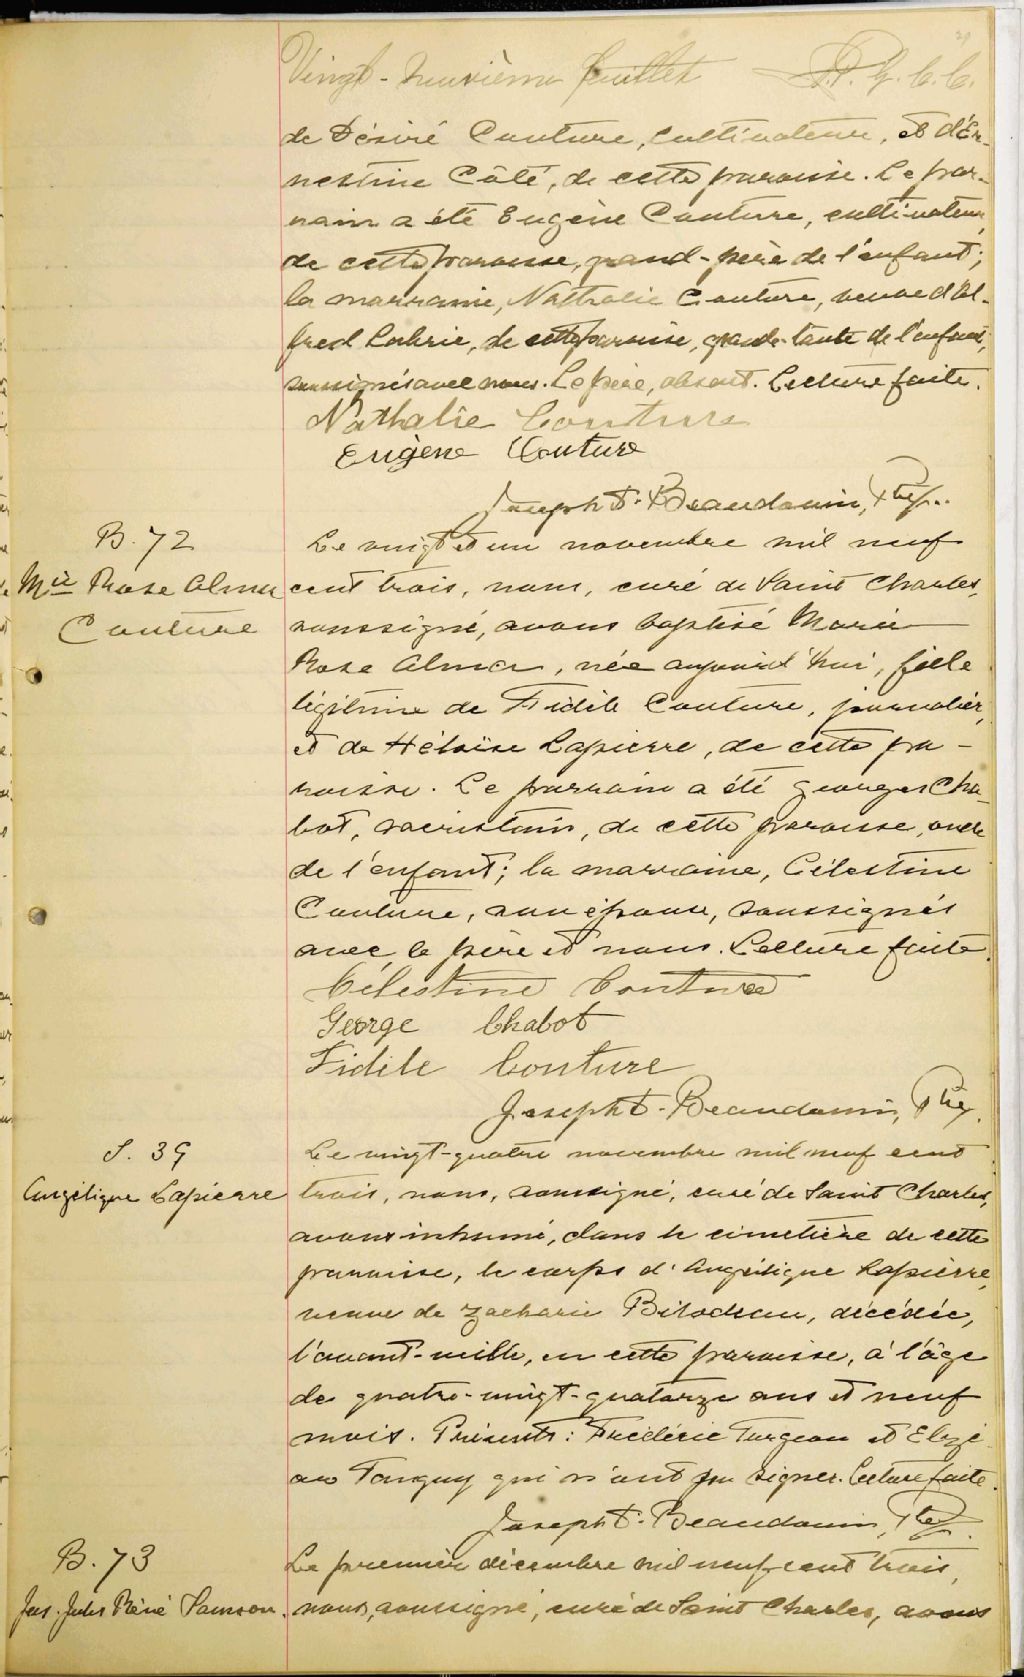 29
Vingt-neuvième feuillet P. G. C. C.
de Désiré Couture, cultivateur, et d'Er-
nestine Côté, de cette paroisse. Le par-
rain a été Eugène Couture, cultivateur,
de cette paroisse, grand-père de l'enfant;
la marraine, Nathalie Couture, veuve d'Al-
fred Labrie, de cette paroisse, grande-tante de l'enfant,
soussignés avec nous. Le père, absent. Lecture faite.
Nathalie Couture
Eugène Couture
Joseph D. Beaudouin, Ptre.
B. 72
Mie Rose Alma
Couture
Le vingt et un novembre mil neuf
cent trois, nous, curé de Saint Charles,
soussigné, avons baptisé Marie
Rose Alma, née aujourd'hui, fille
légitime de Fidèle Couture, journalier,
et de Héloïse Lapierre, de cette pa-
roisse. Le parrain a été Georges Cha-
bot, sacristain, de cette paroisse, oncle
de l'enfant; la marraine, Célestine
Couture, son épouse, soussignés
avec le père et nous. Lecture faite.
Célestine Couture
George Chabot
Fidèle Couture
Joseph D. Beaudouin, Ptre.
S. 39
Angélique Lapierre
Le vingt-quatre novembre mil neuf cent
trois, nous, soussigné, curé de Saint Charles,
avons inhumé, dans le cimetière de cette
paroisse, le corps d'Angélique Lapierre,
veuve de Zacharie Bilodeau, décédée,
l'avant-veille, en cette paroisse, à l'âge
de quatre-vingt-quatorze ans et neuf
mois. Présents: Frédéric Turgeon et Elzé
ar Tanguay qui n'ont pu signer. Lecture faite.
Joseph D. Beaudouin, Ptre.
B. 73
Jos. Jules Réné Samson.
Le premier décembre mil neuf cent trois,
nous, soussigné, curé de Saint Charles, avons